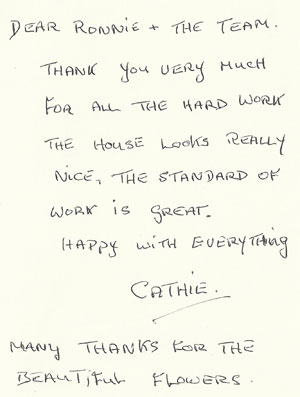 DEAR RONNIE + THE TEAM.
THANK YOU VERY MUCH
FOR ALL THE HARD WORK
THE HOUSE LOOKS REALLY
NICE, THE STANDARD OF
WORK IS GREAT.
HAPPY WITH EVERYTHING
CATHIE.
MANY THANKS FOR THE
BEAUTIFUL FLOWERS.